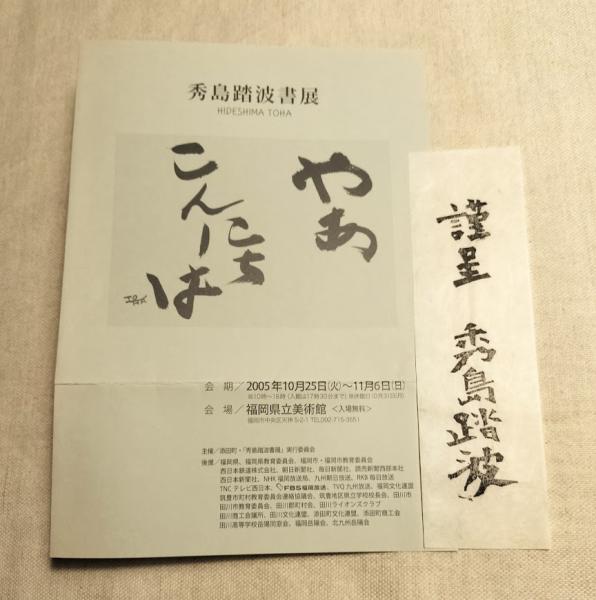 秀島踏波書展
HIDESHIMA TOHA
やあ
こんにちーは
会 期／2005年10月25日(火)～11月6日(日)
会 場／福岡県立美術館 <入場無料>
福岡市中央区天神 5-2-1
主催／添田町・「秀島踏波書展」実行委員会
後援／福岡県、福岡県教育委員会、福岡市・福岡市教育委員会
西日本鉄道株式会社、朝日新聞社、毎日新聞社、読売新聞西部本社
西日本新聞社、NHK 福岡放送局、九州朝日放送、RKB 毎日放送
TNC テレビ西日本、FBS福岡放送、TVQ 九州放送、福岡文化連盟
筑豊市町村教育委員会連絡協議会、筑豊地区県立学校校長会、田川市
田川市教育委員会、田川郡町村会、田川ライオンズクラブ
田川商工会議所、田川文化連盟、添田町文化連盟、添田町商工会
田川高等学校岳陽同窓会、福岡岳陽会、北九州岳陽会
謹呈 秀島踏波